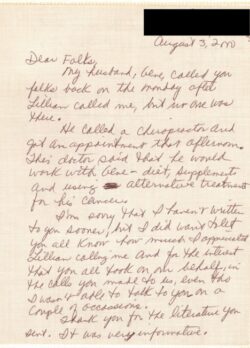 August 3, 2000
Dear Folks,
My husband, Gene, called you
folks back on the Monday after
Lillian called me, but no one was
there.
He called a chiropractor and
got an appointment that afternoon.
This doctor said that he would
work with Gene - diet, supplements
and using alternative treatments
for his cancer.
I'm sorry that I haven't written
to you sooner, but I did want to let
you all know how much I appreciated
Lillian calling me and for the interest
that you all took on our behalf, in
the calls you made to us, even tho
I wasn't able to talk to you on a
couple of occasions.
Thank you for the literature you
sent. It was very informative.